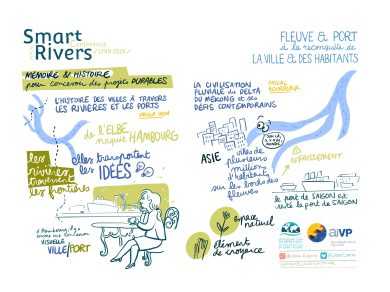 Smart
Rivers
Conférence
FLEUVE & PORT
à la reconquête de
LA VILLE & DES HABITANTS
MÉMOIRE & HISTOIRE
pour concevoir des projets DURABLES
L'HISTOIRE DES VILLES À TRAVERS
LES RIVIÈRES ET LES PORTS
de L'ELBE
naquit HAMBOURG
les
rivières
traversent
les
frontières
elles transportent
les IDÉES
à Hambourg, il y a
encore une connexion
VISUELLE
VILLE/PORT
LA CIVILISATION
FLUVIALE DU DELTA
DU MÉKONG ET SES
DÉFIS CONTEMPORAINS
PASCAL
BOURDEAUX
ASIE
villes de
plusieurs
millions
d'habitants
sur les bords des
fleuves
AFFAISSEMENT
le port de SAIGON est
resté le port de SAIGON
espace
naturel
élément
de croyance
aivp